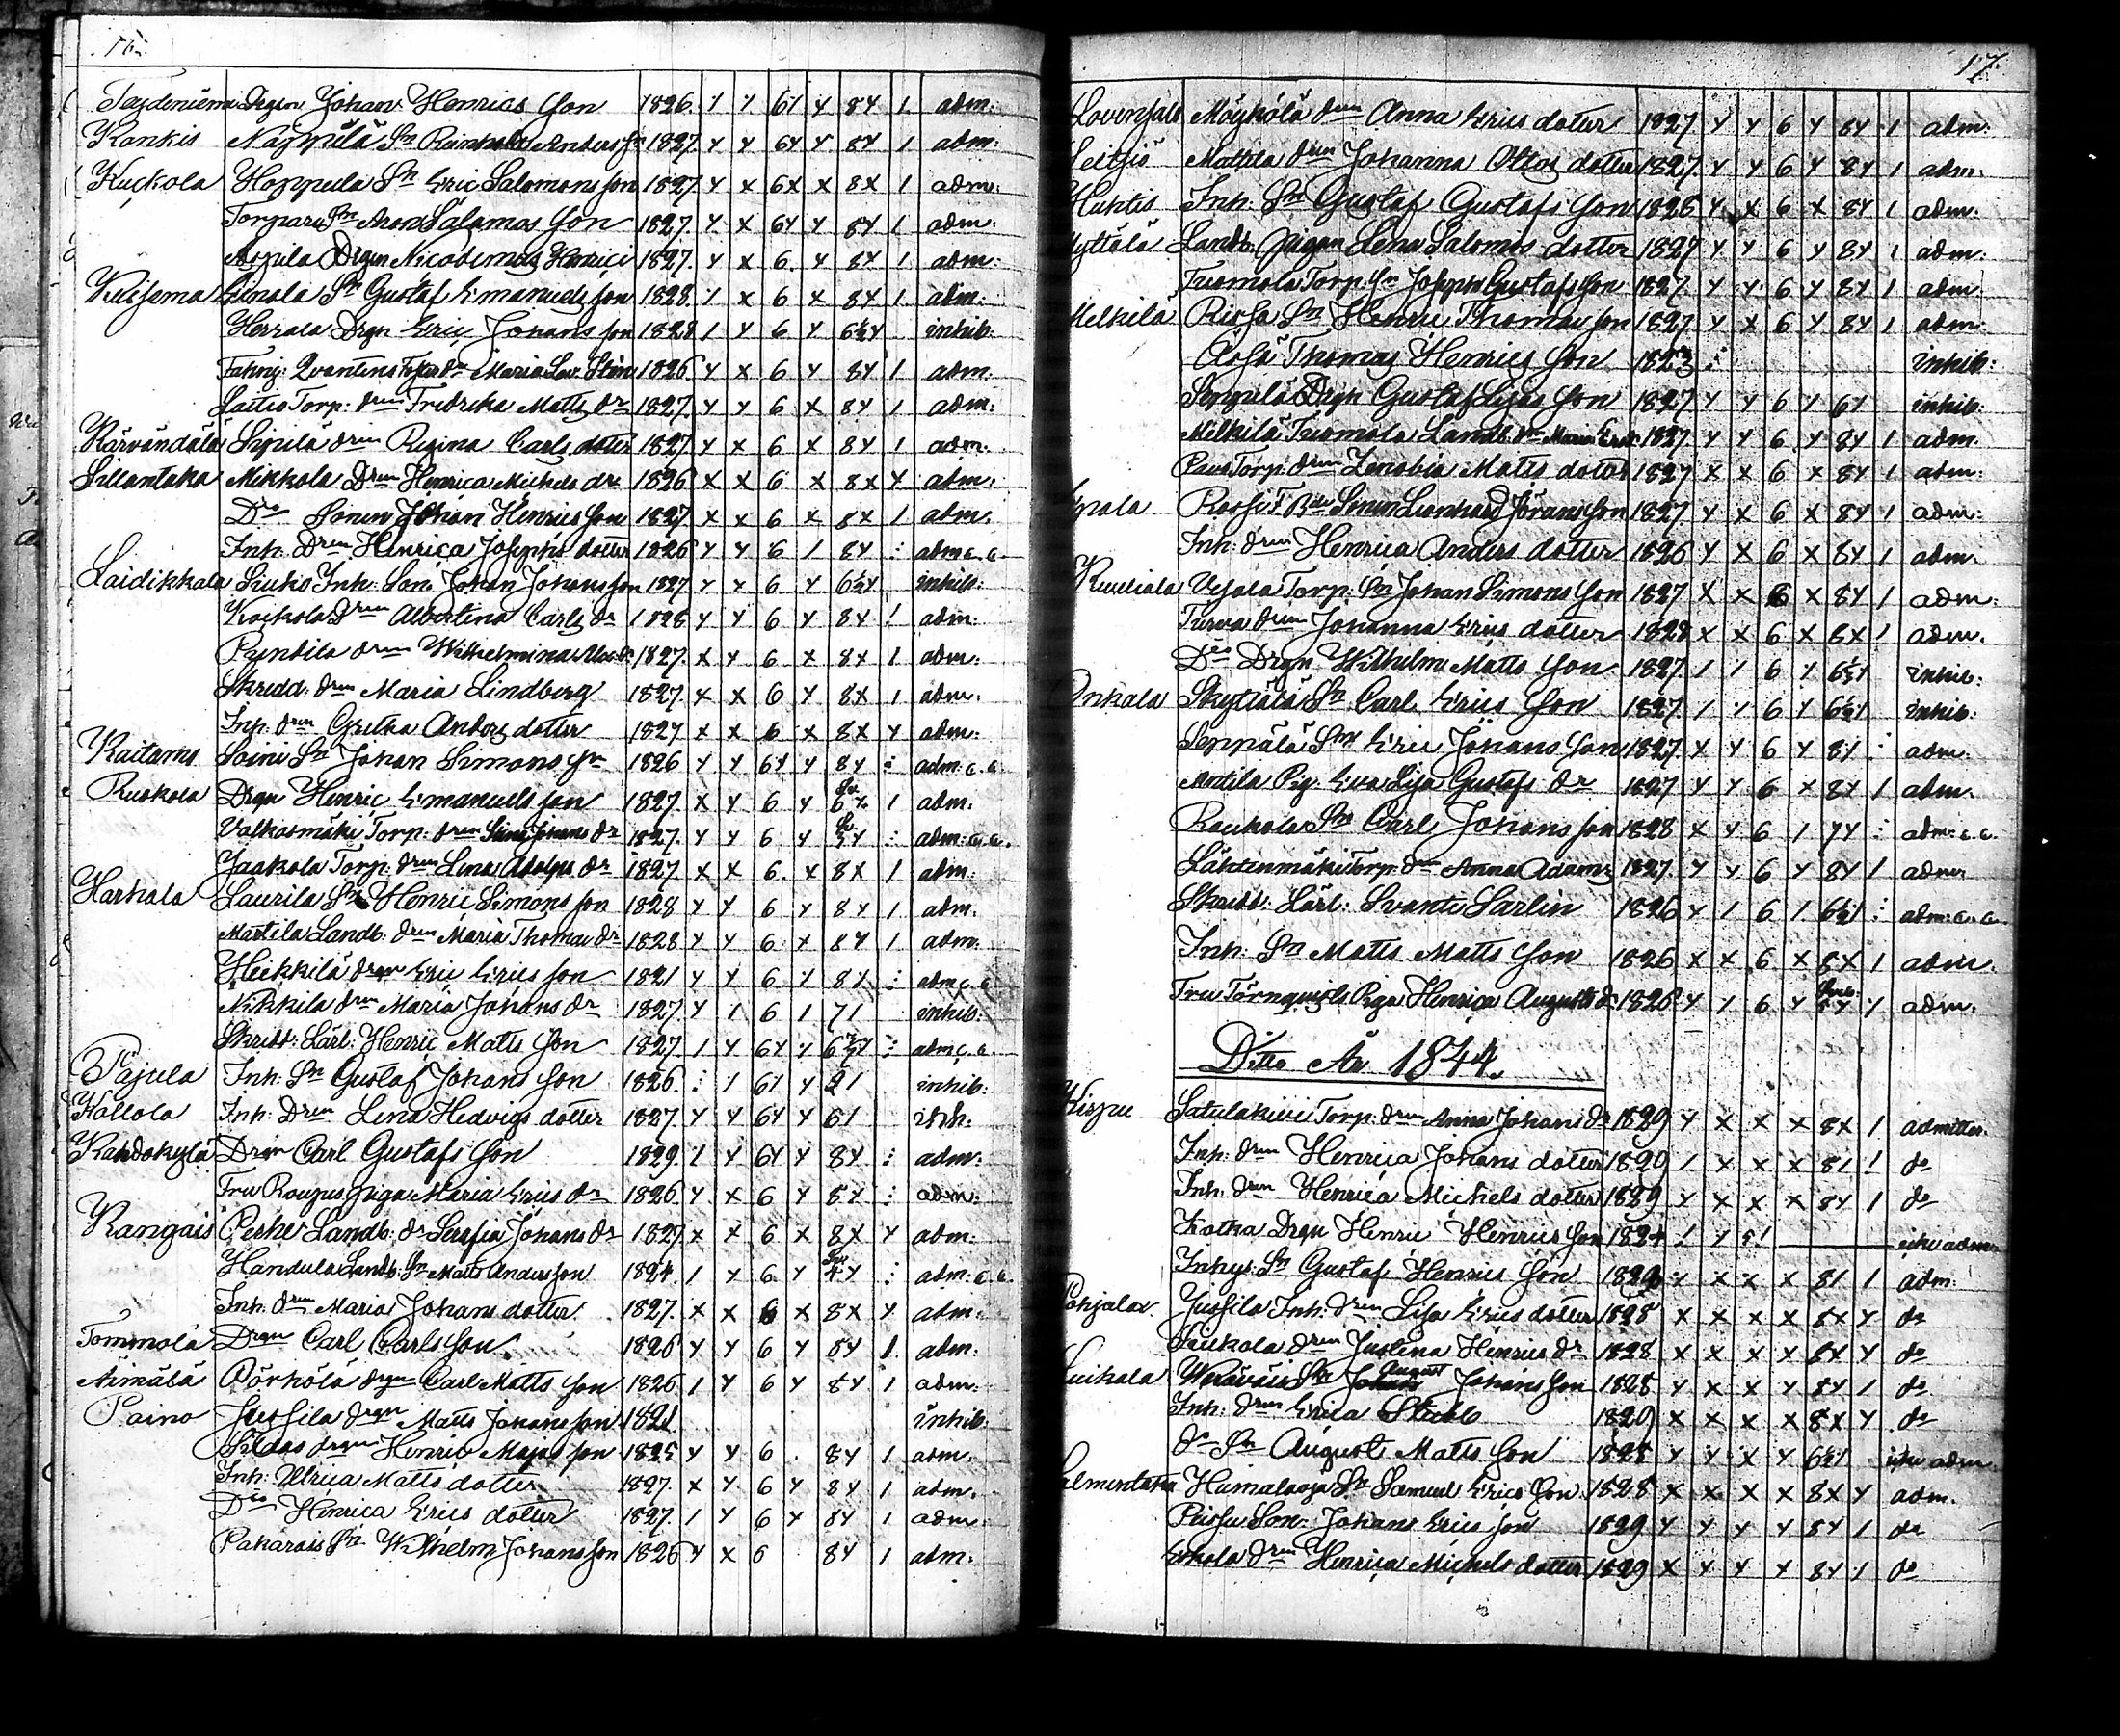 16.
Drgen Johan Henrics Son 1826. y y 6y y 8y 1 adm:
Konkis Näppilä Sn Reinhold Anders Sn 1827. y y 6y y 8y 1 adm:
Kuckola Hoppula Sn Eric Salomons Son 1827 y x 6x x 8x 1 adm:
Torpare Sn Aron Salomos Son 1827. y x 6y y 8y 1 adm:
Drgn Nicodemus Henrici 1827. y x 6. y 8y 1 adm:
Sn Gustaf Emanuels Son 1828. 1 x 6 x 8y 1 adm:
Herrala Drgn Eric Johans Son 1828 1 y 6 y 6½y inhib:
Maria 1826. y x 6 y 8y 1 adm.
Torp: drn Fredrika Matts dr 1827. y y 6 x 8y 1 adm:
Sipilä drn Regina Carls dotter 1827 y x 6 x 8y 1 adm:
Sillantaka Mikkola Drn Henrica Michels dr 1826 x x 6 x 8x y adm:
Do Sonen Johan Henrics Son 1827 x x 6 x 8x 1 adm.
Inh. Drn Henrica Josephs dotter 1826 y y 6 1 8y : adm c.c.
Laidikkala Inh: Son Johan Johans Son 1827 y x 6 y 6½y inhib:
Drn Albertina Carls dr 1826 y y 6 y 8y 1 adm:
Penttilä drn Wilhelmina 1827. x y 6 x 8x 1 adm:
Skredd: drn Maria Lindberg 1827. x x 6 y 8x 1 adm.
Inh. drn Gretha Anders dotter 1827 x x 6 x 8x y adm:
Raitams Soini Sn Johan Simons Sn 1826 y y 6y y 8y : adm: c.c.
Ruskola Drgn Henric Emanuels Son 1827. x y 6 y 1 adm.
Valkasmäki Torp: drn Johans dr 1827. y y 6 y : adm: c.c.
Jaakola Torp. drn Lena Adolphs dr 1827. x x 6. x 8x 1 adm:
Harhala Laurila Sn Henric Simons Son 1828 y y 6 y 8y 1 adm.
Mattila Landb: drn Maria Thomae dr 1828 y y 6 y 8y 1 adm.
Heikkilä drgn Eric Erics Son 1821 y y 6 y 8y : adm c.c.
Nikkilä drn Maria Johans dr 1827 y 1 6 1 71 inhib:
Skredd: Lärl: Henric Matts Son 1827 1 y 6y y : adm c.c.
Pajula Inh: Sn Gustaf Johans Son 1826. : 1 61 y inhib:
Kollola Inh: Drn Lena Hedvigs dotter 1827. y y 6y y 61 inh:
Drgn Carl Gustafs Son 1829. 1 y 6y y 8y : adm:
Fru piga Maria Erics dr 1826 y x 6 y 8y : adm:
Kangais Landb: dr Serafia Johans dr 1827 x x 6 x 8x y adm:
Landb: Sn Matts Anders Son 1824. 1 y 6 y : adm: c.c.
Inh: drn Maria Johans dotter. 1827. x x 6 x 8x y adm:
Tommola Drgn Carl Carls Son. 1826 y y 6 y 8y 1. adm:
Äimälä Pörhölä drgn Carl Matts Son 1826 1 y 6 y 8y 1 adm:
Paino Jussila drgn Matts Johans Son 1821 inhib:
drgn Henric Matts Son 1825 y y 6 8y 1 adm.
Inh: Ulrica Matts dotter 1827. x y 6 y 8y 1 adm.
Do Henrica Erics dotter 1827. 1 y 6 y 8y 1 adm:
Paharais Sn Wilhelm Johans Son 1826 y x 6 8y 1 adm.
17.
Möyhölä drn Anna Erics dotter 1827 y y 6 y 8y 1 adm:
Mattila drn Johanna Ottos dotter 1827. y y 6 y 8y 1 adm.
Huhtis Inh: Sn Gustaf Gustafs Son 1826 y x 6 x 8y 1 adm:
Landb: pigan Lena Salomos dotter 1827 y y 6 y 8y 1 adm:
Tuomola Torp. Sn Joseph Gustafs Son 1827 y y 6 y 8y 1 adm.
Melkilä Sn Henric Thomae Son 1827 y x 6 y 8y 1 adm:
Thomas Henrics Son 1823 : inhib:
Drgn Gustaf Son 1827 y y 6 y 6y inhib:
Melkilä Tuomola Landb. drn Maria 1827 y y 6 y 8y 1 adm.
Torp: drn Zenobia Matts dotter 1827 x x 6 x 8y 1 adm:
Sonen Leonhard Jörans Son 1827 y x 6 x 8y 1 adm:
Inh: drn Henrica Anders dotter 1826 y x 6 x 8y 1 adm.
Torp: Sn Johan Simons Son 1827 x x 6 x 8y 1 adm:
Turva drn Johanna Erics dotter 1828 x x 6 x 8x 1 adm.
Do Drgn Wilhelm Matts Son 1827. 1 1 6 1 6½y inhib:
Onkala Skyttälä Sn Carl Erics Son 1827. 1 y 6 y 6½1 inhib:
Seppälä Sn Eric Johans Son 1827. x y 6 y 8y : adm.
Anttila Pig. Eva Lisa Gustafs dr 1827 y y 6 x 8y 1 adm.
Sn Carl Johans Son 1828 x y 6 1 7y : adm: c.c.
Lähtenmäki Torp. drn Anna Adams 1827. y y 6 y 8y 1 adm
Skredd: Lärl: Svante Sarlin 1826 y 1 6 1 6½1 : adm: c.c.
Inh: Sn Matts Matts Son 1826 x x 6 x 8x 1 adm.
Fru Törnqvists Piga Henrica Augusts dr 1826 y 1 6 y y adm:
Ditto År 1844.
Satulakivi Torp: drn Anna Johans dr 1829 y x x x 8x 1 admitter.
Inh: drn Henrica Johans dotter 1829 1 x x x 81 1 do
Inh: drn Henrica Michels dotter 1829 y x x x 8y 1 do
Kotka Drgn Henric Henrics Son 1824 : y 5! icke adm:
Inhys: Sn Gustaf Henrics Son 1829 y x x x 81 1 adm:
Pohjala Jussila Inh: drn Lisa Erics dotter 1828 x x x x 8x y do
drn Justina Henrics dr 1828 x x x x 8x y do
Sn August Johans Son 1828 y x x y 8y 1 do
Inh: drn Erica Stubb 1829 x x x x 8x y do
do Sn August Matts Son 1828 y y x y 6½1 icke adm.
Hamalaoja Sn Samuel Erics Son 1828 x x x x 8x y adm.
Son: Johans Erics Son 1829 y y y y 8y 1 do
drn Henrica Michels dotter 1829 x y y y 8y 1 do